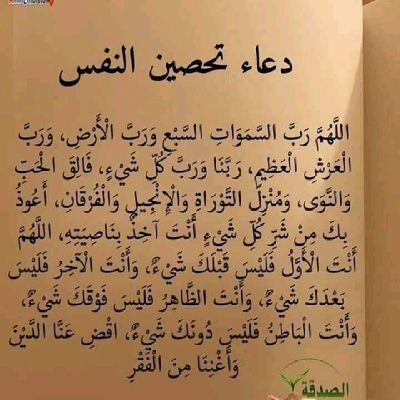 دعاء تحصين النفس
اللَّهُمَّ رَبَّ السَّمَوَاتِ السَّبْعِ وَرَبَّ الْأَرْضِ، وَرَبَّ
الْعَرْشِ الْعَظِيمِ، رَبَّنَا وَرَبَّ كُلِّ شَيْءٍ، فَالِقَ الْحَبِّ
وَالنَّوَى، وَمُنْزِلَ التَّوْرَاةِ وَالْإِنْجِيلِ وَالْفُرْقَانِ، أَعُوذُ
بِكَ مِنْ شَرِّ كُلِّ شَيْءٍ أَنْتَ آخِذٌ بِنَاصِيَتِهِ، اللَّهُمَّ
أَنْتَ الْأَوَّلُ فَلَيْسَ قَبْلَكَ شَيْءٌ، وَأَنْتَ الْآخِرُ فَلَيْسَ
بَعْدَكَ شَيْءٌ، وَأَنْتَ الظَّاهِرُ فَلَيْسَ فَوْقَكَ شَيْءٌ،
وَأَنْتَ الْبَاطِنُ فَلَيْسَ دُونَكَ شَيْءٌ، اقْضِ عَنَّا الدَّيْنَ
وَأَغْنِنَا مِنَ الْفَقْرِ
الصدقة